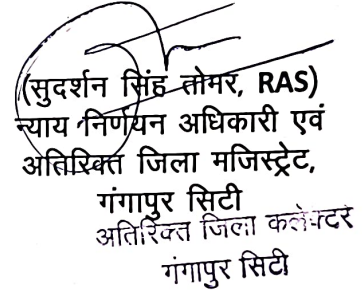 (सुदर्शन सिंह तोमर, RAS)
न्याय निर्णयन अधिकारी एवं
अतिरिक्त जिला मजिस्ट्रेट,
गंगापुर सिटी
अतिरिक्त जिला कलेक्टर
गंगापुर सिटी